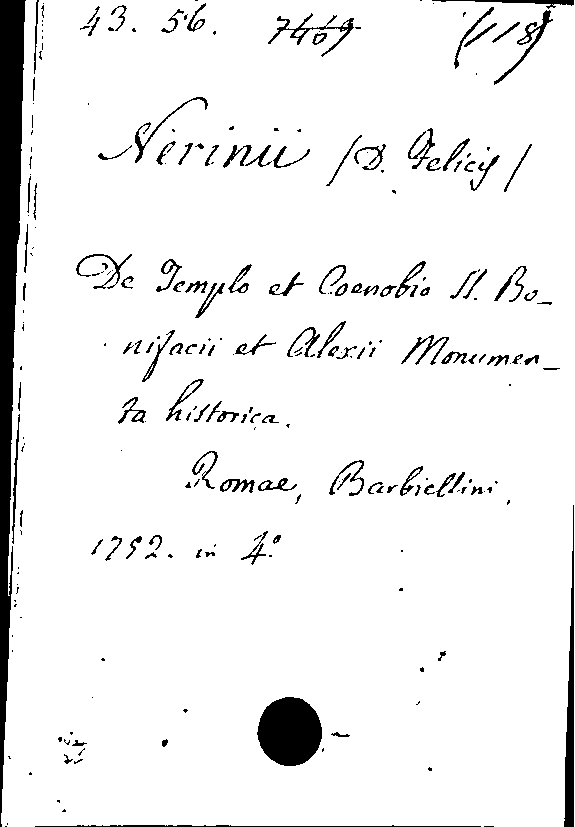 43. 56. 7469 (118)
Nerinii /D. Felicis/
De Templo et Coenobio SS. Bo-
nifacii et Alexii Monumen-
ta historica.
Romae, Barbiellini,
1752. in 4.º